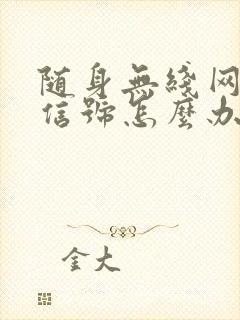 随身無綫网
信號怎麼办
金大